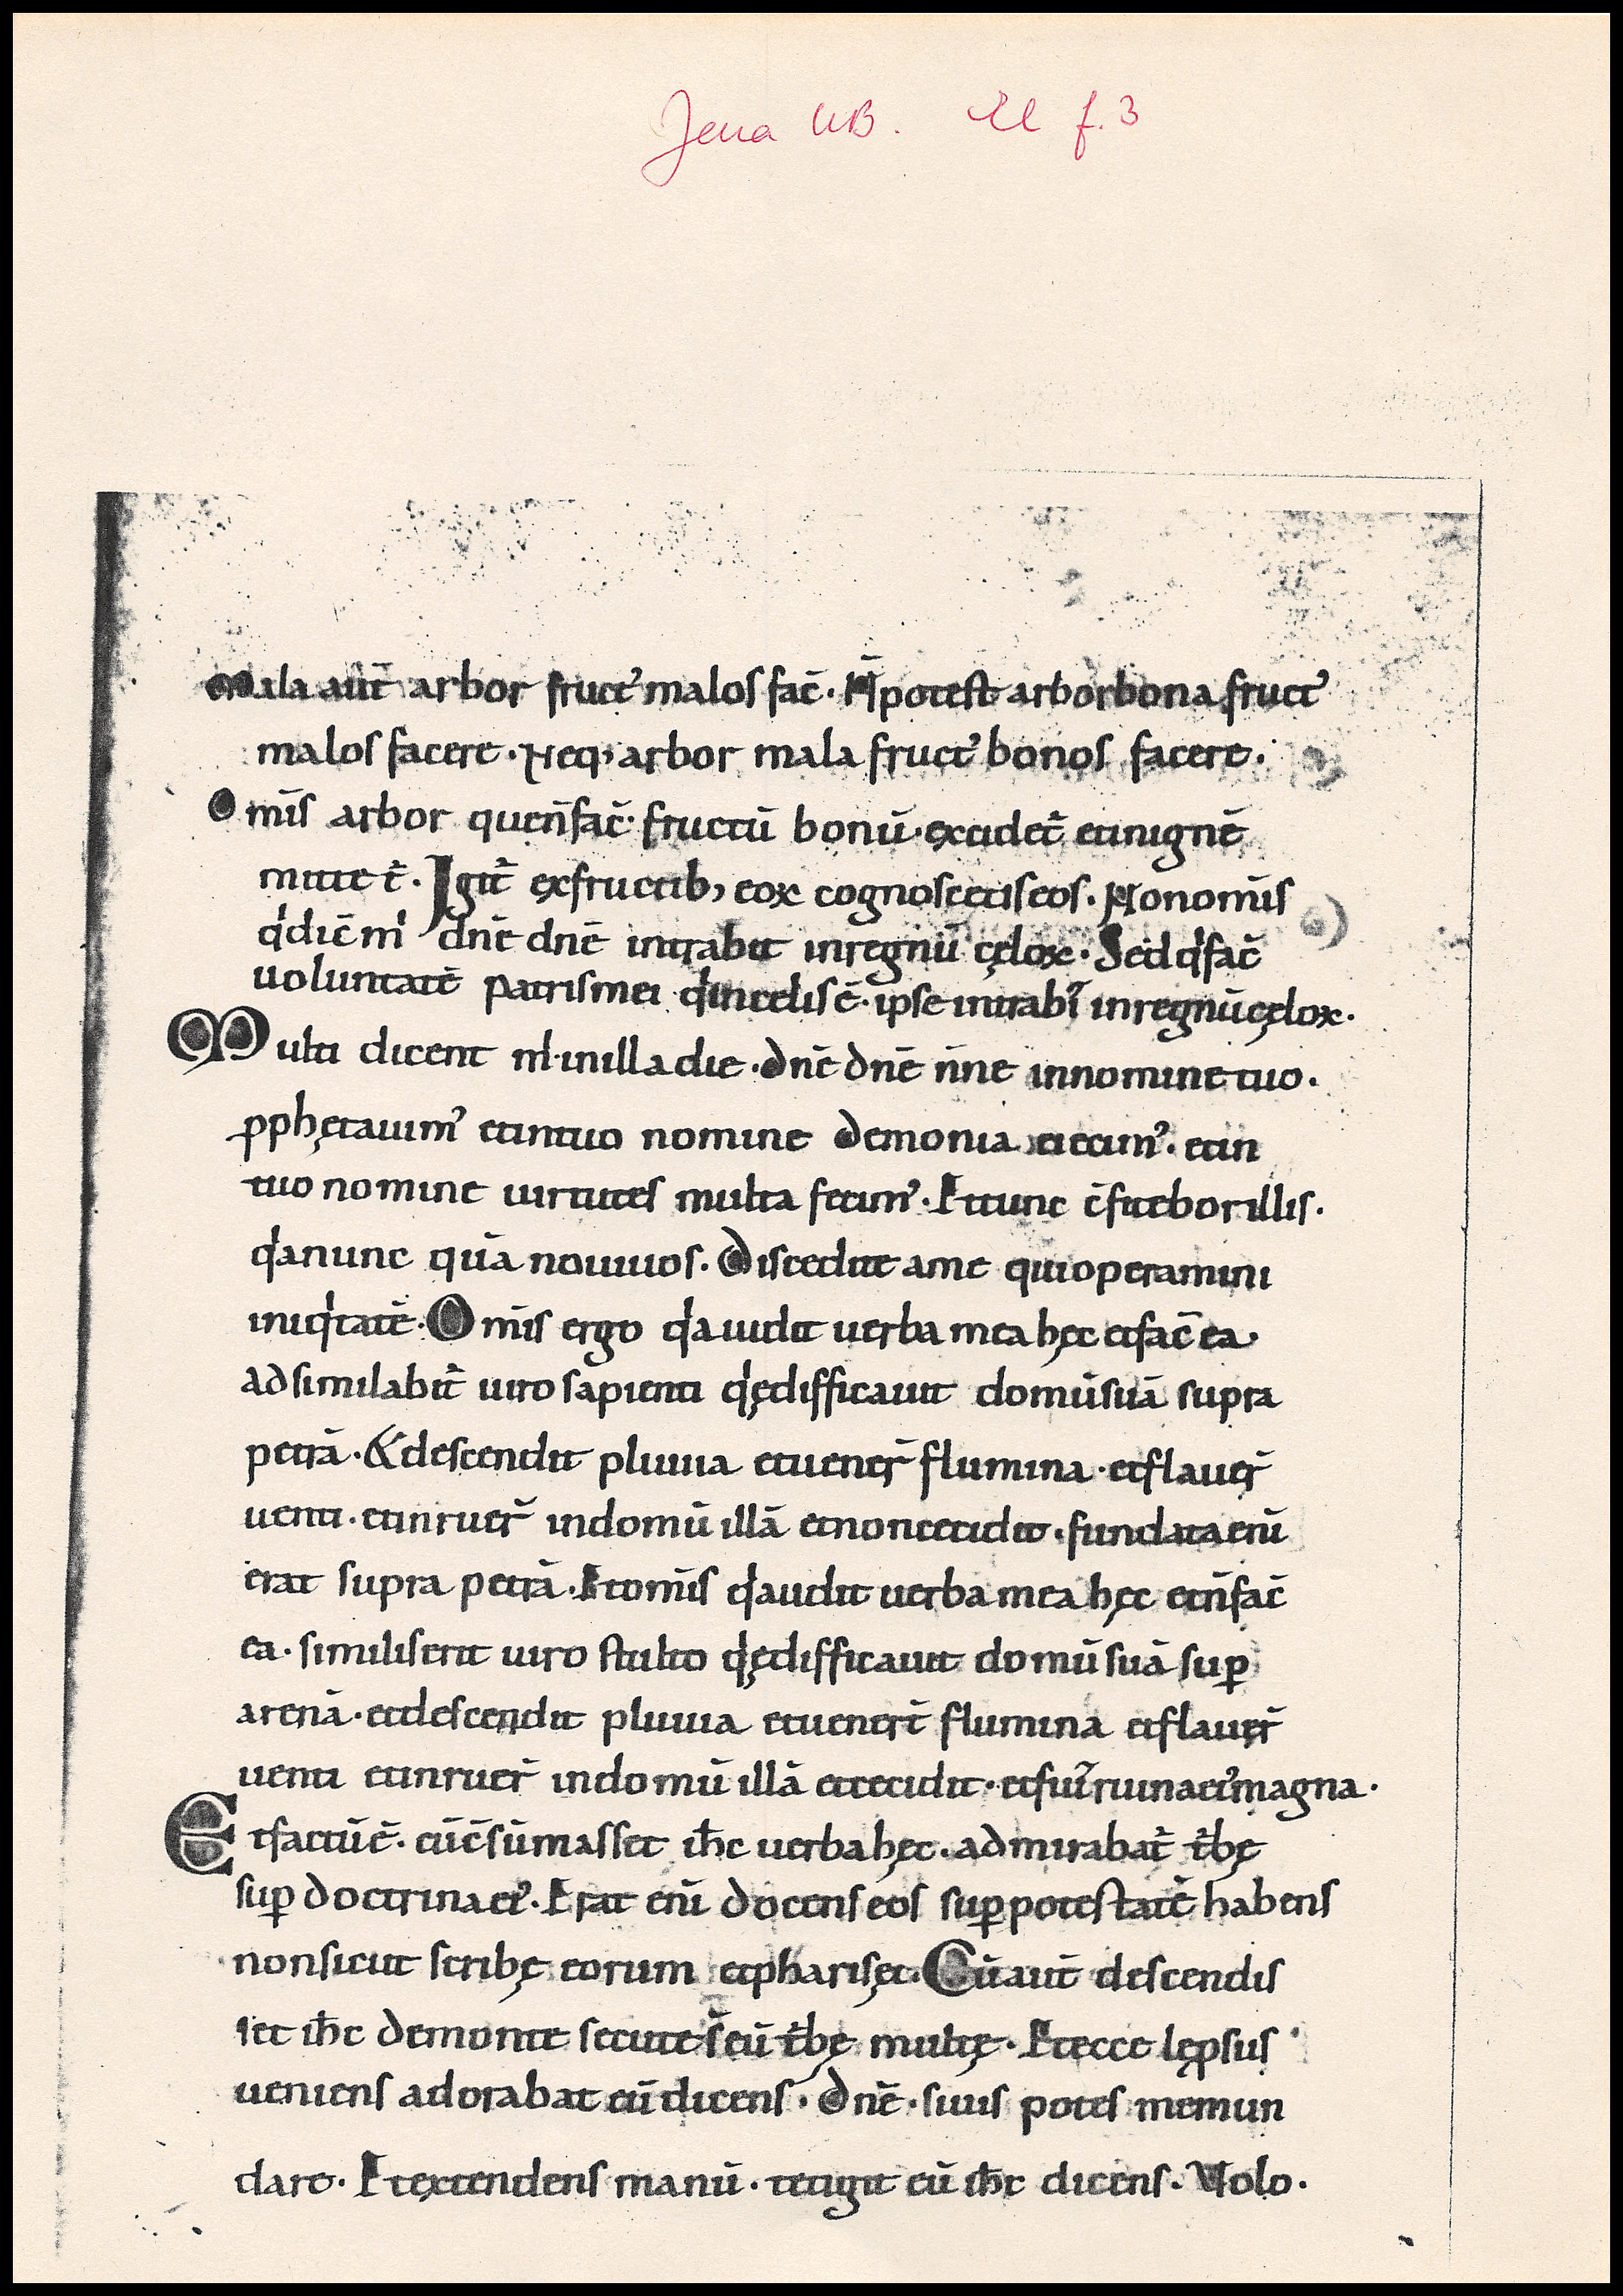 Jena UB. El f. 3
Mala aut̄ arbor fruct᾽ malos fac̄. N̄ potest arbor bona fruct᾽
malos facere. Neq, arbor mala fruct᾽ bonos facere.
Omīs arbor que n̄ fac̄ fructū bonū. excidet̄ et in ignē
mittet̄. Igit̄ ex fructib, eoꝝ cognoscetis eos. Non omīs
qͥ dic̄ mͥ dn̄e dn̄e intrabit in regnū cęloꝝ. Sed qͥ fac̄
uoluntatē patris mei qͥ in celis ē. ipse intrabͭ in regnū cęloꝝ.
Multi dicent mͥ in illa die. dn̄e dn̄e n̄ne in nomine tuo.
ꝓphętauim᾽ et in tuo nomine demonia eiecim᾽. et in
tuo nomine uirtutes multa fecim᾽. Et tunc c̄fitebor illis.
qͥa nunc quā noui uos. Discedite a me qui operamini
iniqͥtatē. Omīs ergo qͥ auudit uerba mea hęc et fac̄ ea.
adsimilabit̄ uiro sapienti qͥ ędifficauit domū suā supra
petrā. & descendit pluuia et uener̄ flumina. et flauer̄
uenti. et inruer̄ in domū illā et non cecidit. fundata enī
erat supra petrā. Et omīs qͥ audit uerba mea hęc et n̄ fac̄
ea. similis erit uiro stulto qͥ ędifficauit domū suā suꝑ
arenā. et descendit pluuia et uenert̄ flumina et flauer̄
uenti et inruer̄ in domū illā et cecidit. et fuiͭ ruina ei᾽ magna.
Et factū ē. cū c̄sūmasset ih̄c uerba hęc. admirabat̄ t̄bę
suꝑ doctrina ei᾽. Erat enī docens eos suꝑ potestatē habens
non sicut scribę eorum et pharisęi. Cū aut̄ descendis
set ih̄c de monte secute s̄ eū t̄bę multę. Et ecce lępsus
ueniens adorabat eū dicens. Dn̄e. si uis potes me mun
dare. Et extendens manū. tetigit eū ih̄c dicens. Volo.